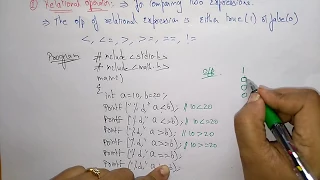 ② Relational operator :- for comparing two expressions.
⇒ The o/p of relational expression is either true (1) or false(0)
<, <=, >, >=, ==, !=
Program # include <stdio.h>
# include <math.h>
main()
{
int a=10, b=20;
Printf ("%d," a<b); // 10<20
Printf ("%d," a<=b); // 10<=20
Printf ("%d," a>b); // 10>20
Printf ("%d," a>=b);
Printf ("%d," a==b);
O/P:
1
0
0